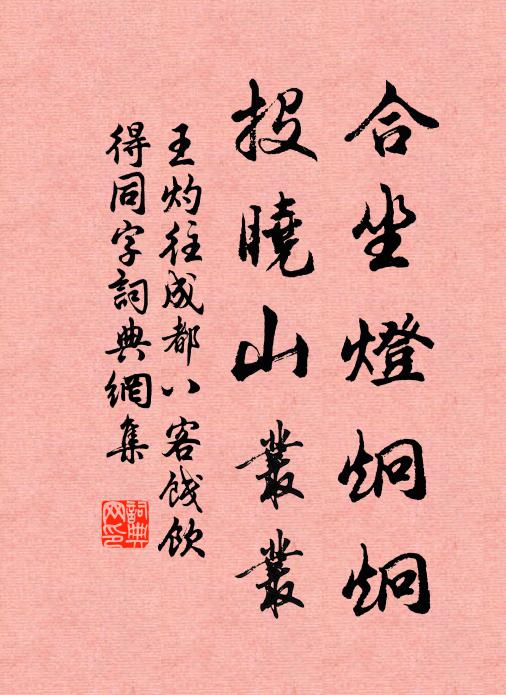 合坐燈炯炯
投曉山叢叢
王灼往成都八客餞飲
得同字詞典網集
詞典
网印